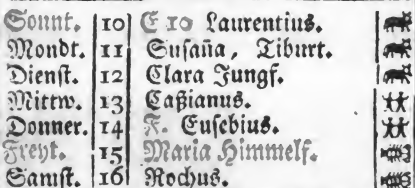 Sonnt. 10 E 10 Laurentius.
Mondt. 11 Suſan̄a, Tiburt.
Dienſt. 12 Clara Jungf.
Mittw. 13 Caßianus.
Donner. 14 F. Euſebius.
Freyt. 15 Maria Himmelf.
Samſt. 16 Rochus.